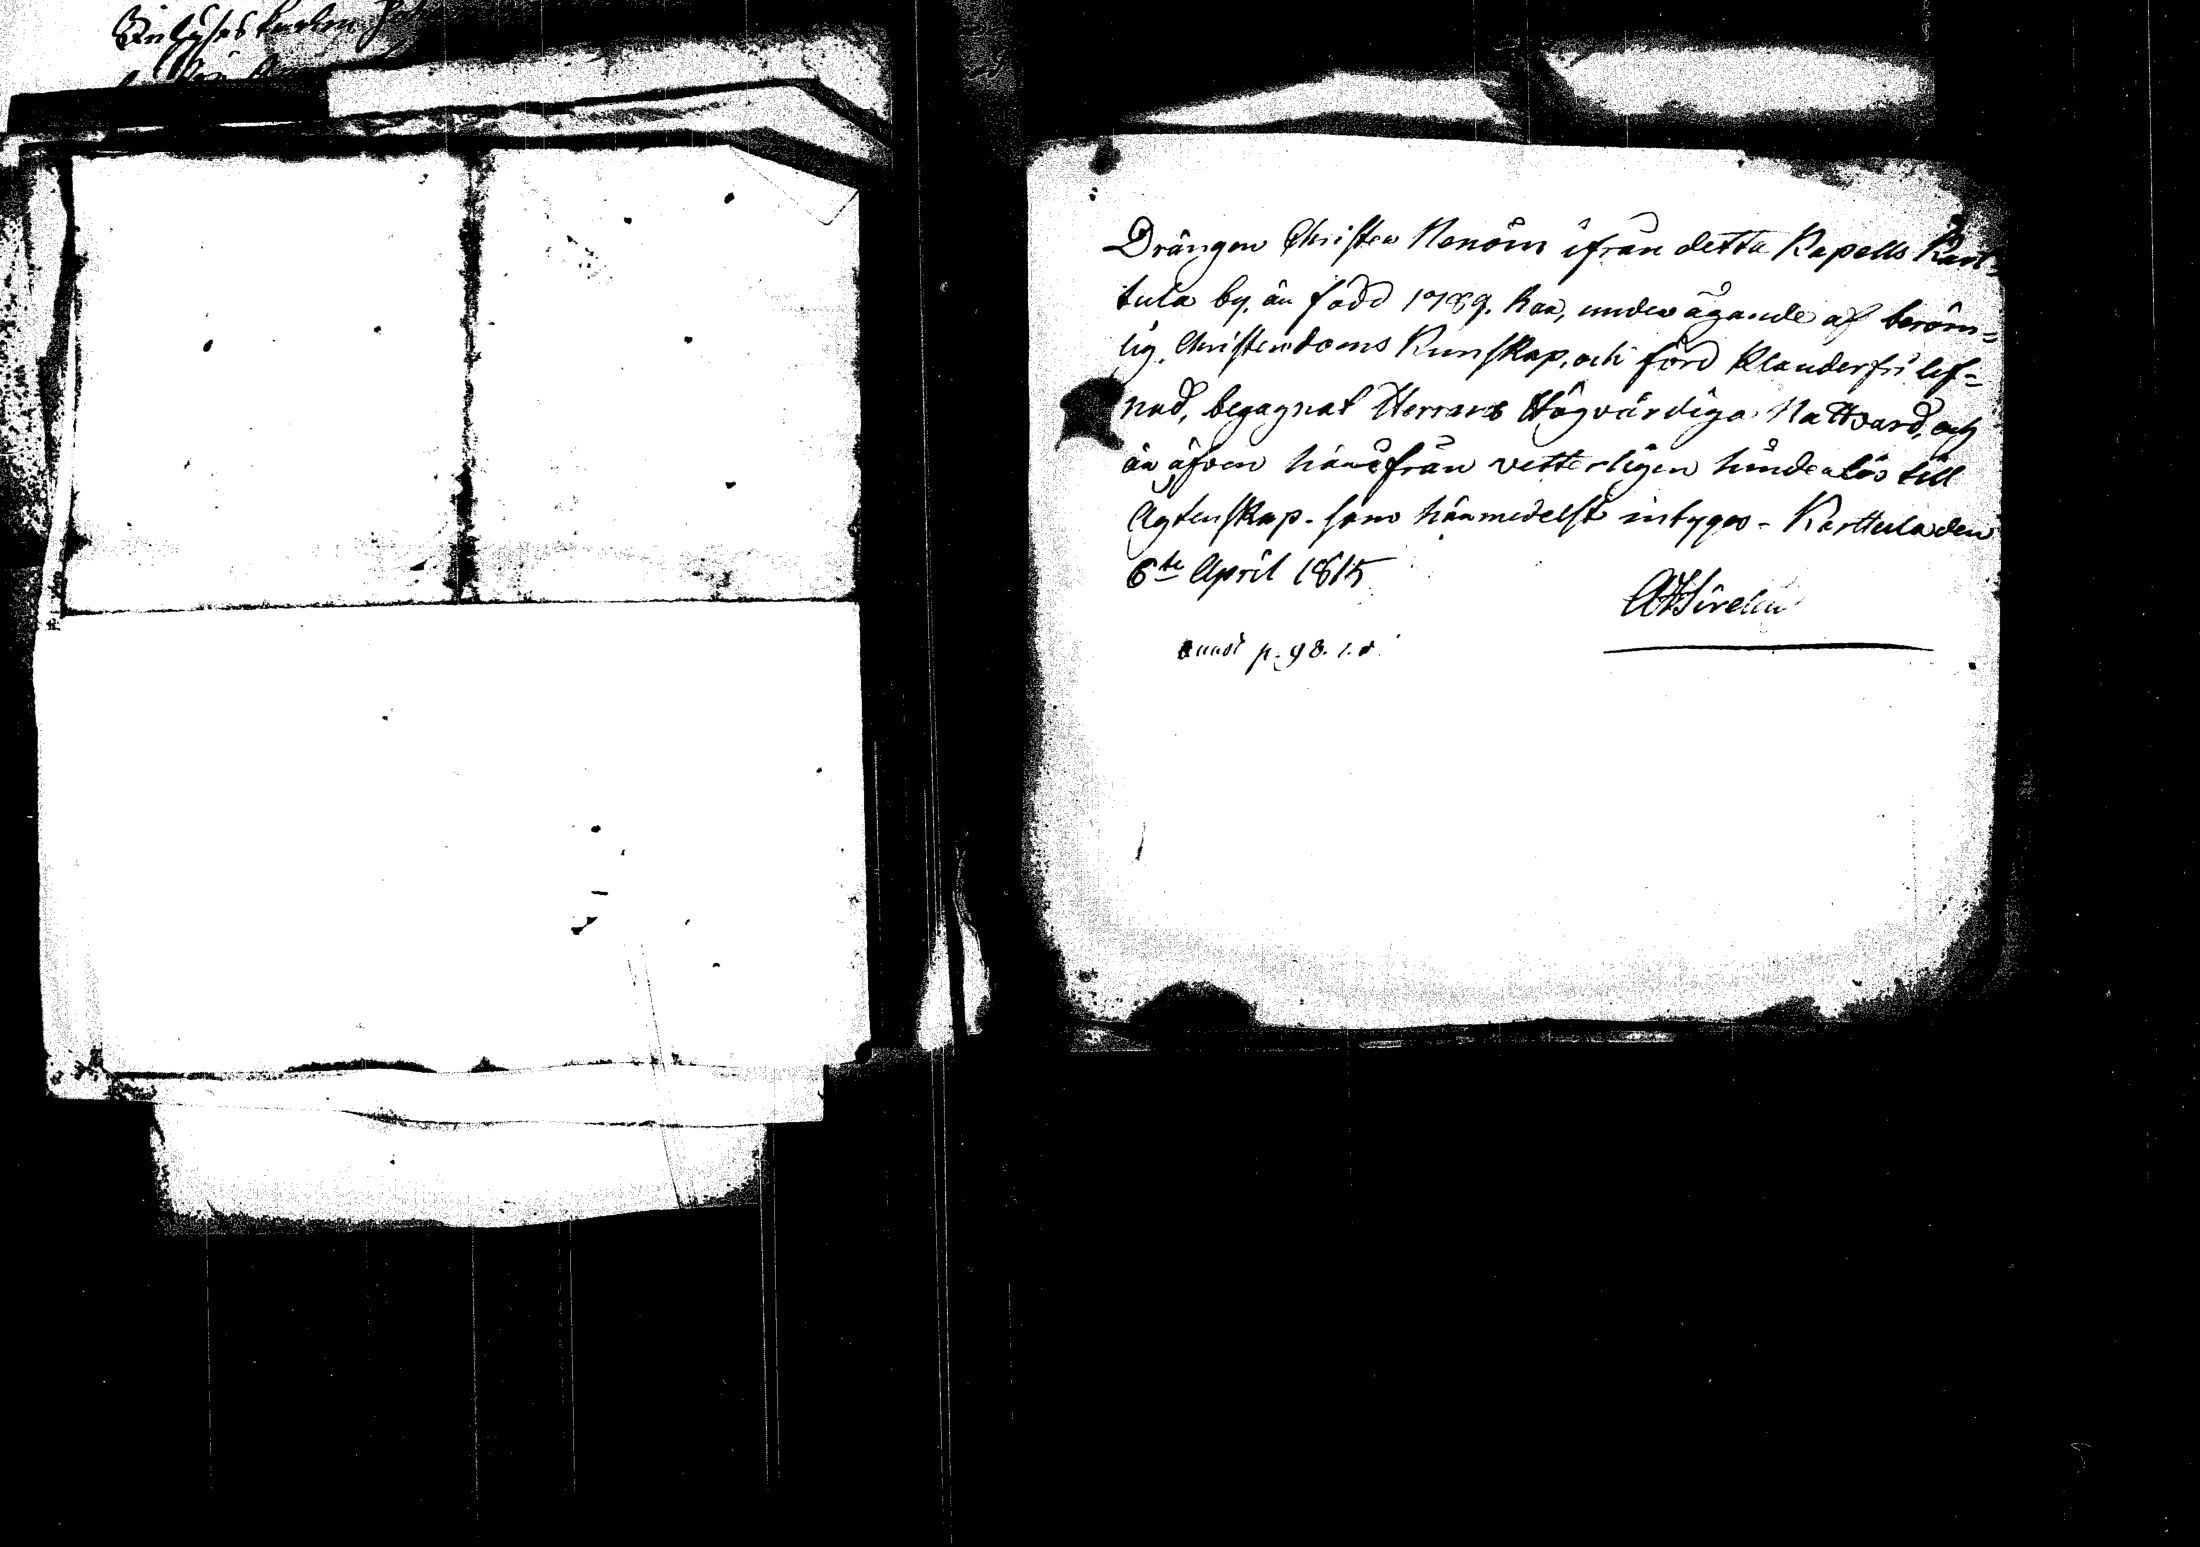 Drängen Christer Nenöin ifrån detta Kapells Kart-
tula by, är född 1789. har, under ägande af beröm-
lig. Christendoms Kunskap, och förd Klanderfri lef-
nad, begagnat Herrans Högvärdiga Nattvard, och
är äfven härifrån vetterligen hinderlös till
Agtenskap. som härmedelst intygas - Karttula den
6te April 1815
p. 98.